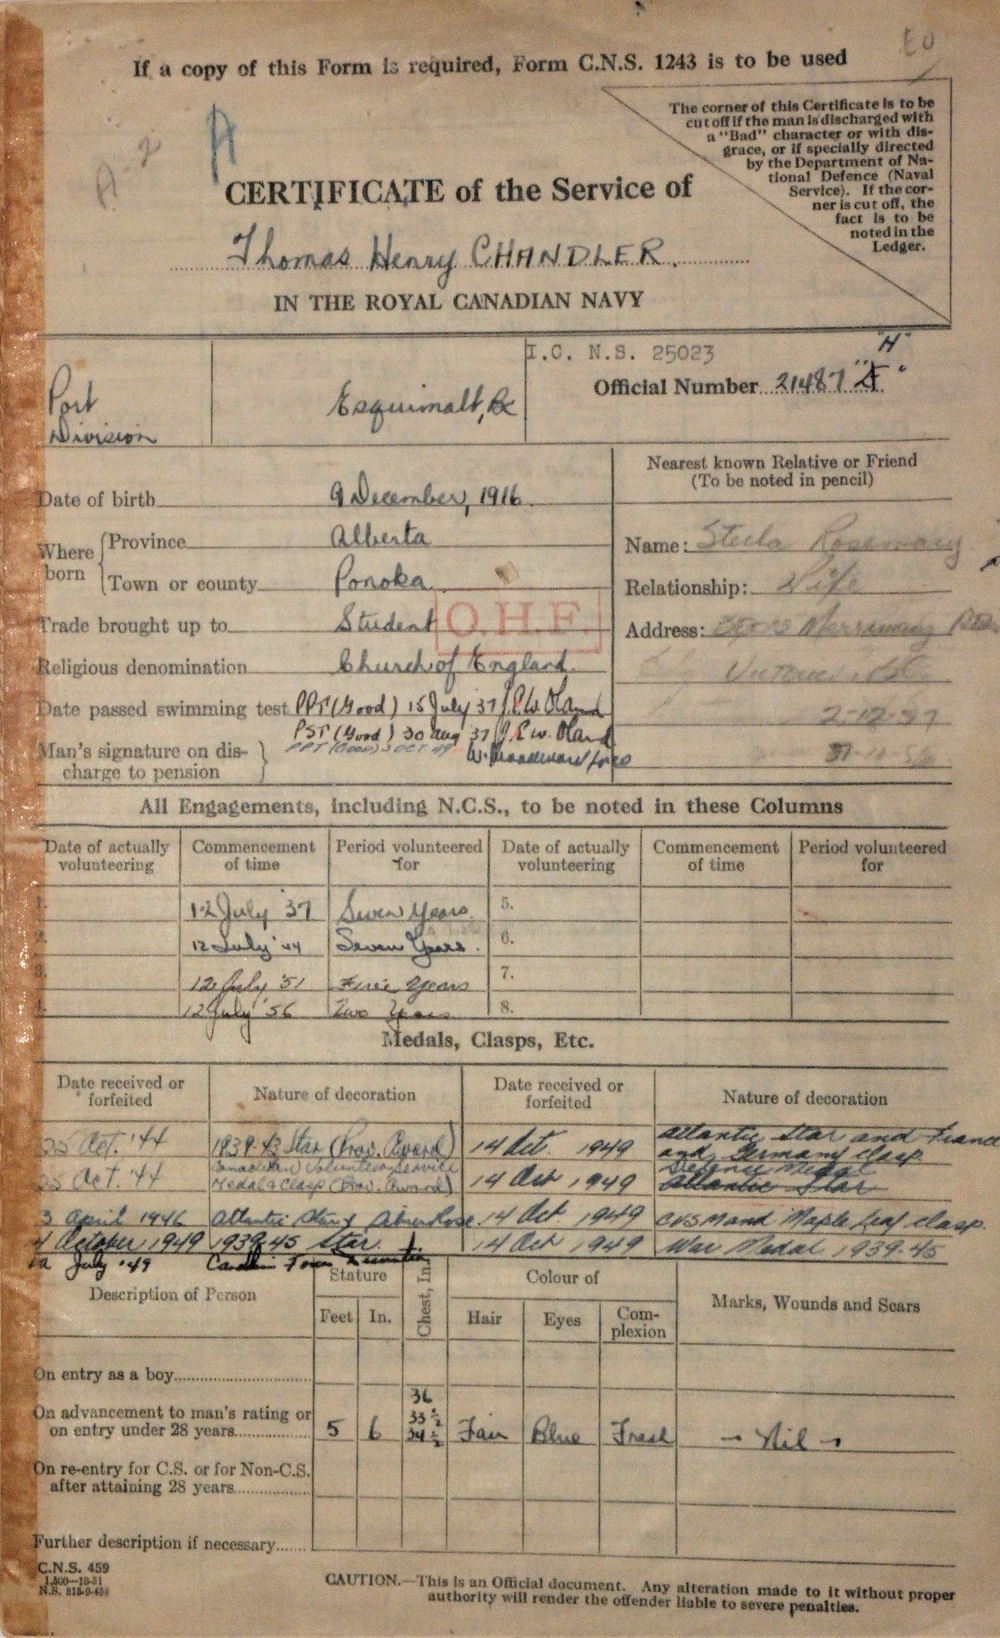 If a copy of this Form is required, Form C.N.S. 1243 is to be used
A-2
A
The corner of this Certificate is to be
cut off if the man is discharged with
a "Bad" character or with dis-
grace, or if specially directed
by the Department of Na-
tional Defence (Naval
Service). If the cor-
ner is cut off, the
fact is to be
noted in the
Ledger.
CERTIFICATE of the Service of
Thomas Henry CHANDLER.
IN THE ROYAL CANADIAN NAVY
I.C. N.S. 25023
"H"
Official Number 21487
Port Division
Esquimalt,
Nearest known Relative or Friend
(To be noted in pencil)
Date of birth 9 December, 1916.
Where born { Province Alberta
Town or county Ponoka
Trade brought up to Student
O.H.F.
Religious denomination Church of England.
Date passed swimming test PPT (Good) 15 July 37 J.P.W. Oland
PST (Good) 30 Aug 37 J.P.W. Oland
PPT (Good) 3 OCT 49
Man's signature on dis-
charge to pension
Name: Rosemary
Relationship: Wife
Address:
2-12-57
All Engagements, including N.C.S., to be noted in these Columns
Date of actually volunteering Commencement of time Period volunteered for Date of actually volunteering Commencement of time Period volunteered for
1. 12 July '37 Seven Years. 5.
2. 12 July '44 Seven Years. 6.
3. 12 July '51 Five Years 7.
4. 12 July '56 Two Years 8.
Medals, Clasps, Etc.
Date received or forfeited Nature of decoration Date received or forfeited Nature of decoration
25 Oct. '44 1939-43 Star (Prov. Award) 14 Oct. 1949 Atlantic Star and France and Germany clasp.
25 Oct. '44 Canadian Volunteer Service Medal & Clasp (Prov. Award) 14 Oct 1949 Defence Medal Atlantic Star
3 April 1946 Atlantic Star 14 Oct 1949 CVSM and Maple Leaf clasp.
4 October 1949 1939-45 Star. 14 Oct 1949 War Medal 1939-45
July '49
Description of Person Stature Chest, In. Colour of Marks, Wounds and Scars
Feet In. Hair Eyes Com-plexion
On entry as a boy
On advancement to man's rating or
on entry under 28 years 5 6 36 33½ 34½ Fair Blue Fresh - Nil -
On re-entry for C.S. or for Non-C.S.
after attaining 28 years
Further description if necessary
C.N.S. 459
1,500—10-31
N.S. 815-9-459
CAUTION.—This is an Official document. Any alteration made to it without proper
authority will render the offender liable to severe penalties.